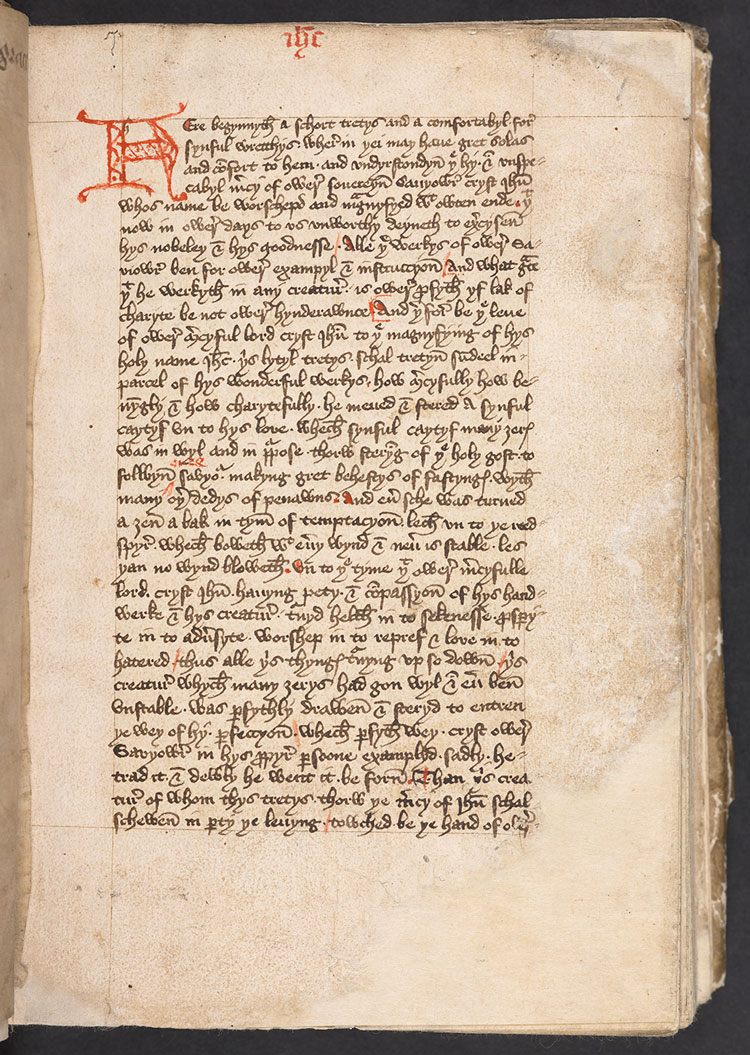 ihc
Here begynnyth a schort tretys and a comfortabyl for
synful wrecchys, wher in yei may haue gret solas
and cōfort to hem · and vndyrstondyn yᵉ hy · & vnspe-
cabyl m̄cy of ower souereyn Sauyowr cryst Ihū
whos name be worschepd and magnyfyed wᵗ owten ende · yᵗ
now in ower days to vs vnworthy deyneth to exꝑcysen
hys nobeley & hys goodnesse · Alle yᵉ werkys of ower Sa-
viowr ben for ower exampyl & instruccyon And what grace
yᵗ he werkyth in any creatur · is ower ꝓfyth yf lak of
charyte be not ower hynderawnce And yerfor be yᵉ leue
of ower m̄cyful lord cryst Ihū to yᵉ magnyfying of hys
holy name Ihc · yis lytyl tretys schal tretyn sūdeel in
parcel of hys wonderful werkys · how m̄cyfully how be-
nyngly & how charytefully · he meued & stered a synful
caytyf vn to hys loue · whech synful caytyf many ȝerys
was in wyl and in ꝑpose · thorw steryng of yᵉ holy gost · to
folwyn ower savyowr makyng gret behestys of fastyngys wyth
many oyer dedys of penawns · And euyr sche was turned
a ȝen a bak in tym of temptacyon lech vn to ye reed
spyr · whech boweth wᵗ euery wynd & neuyr is stable · les
yan no wynd bloweth · vn to yᵉ tyme yᵗ ower m̄cyfulle
lord cryst Ihū hauyng pety · & cōpassyon of hys hand-
werke & hys creatur · turnyd helth in to sekenesse · ꝓsꝑy-
te in to aduersyte · worshep in to repref & loue in to
hatered / thus alle yis thyngys turnyng vp so down yis
creatur whych many ȝerys had gon wyl & euyr ben
vnstable · was ꝑfythly drawen & steryd to entren
ye wey of hy ꝑfeccyon / whech ꝑfyth wey · cryst ower
Savyowr in hys ꝓpyr ꝑsoone examplyd · sadly · he
trad it · & dewly he went it · be forn · Than yis crea-
tur of whom thys tretys · thorw ye m̄cy of Ihū schal
schewen in party ye leuyng / towched be ye hand of ower